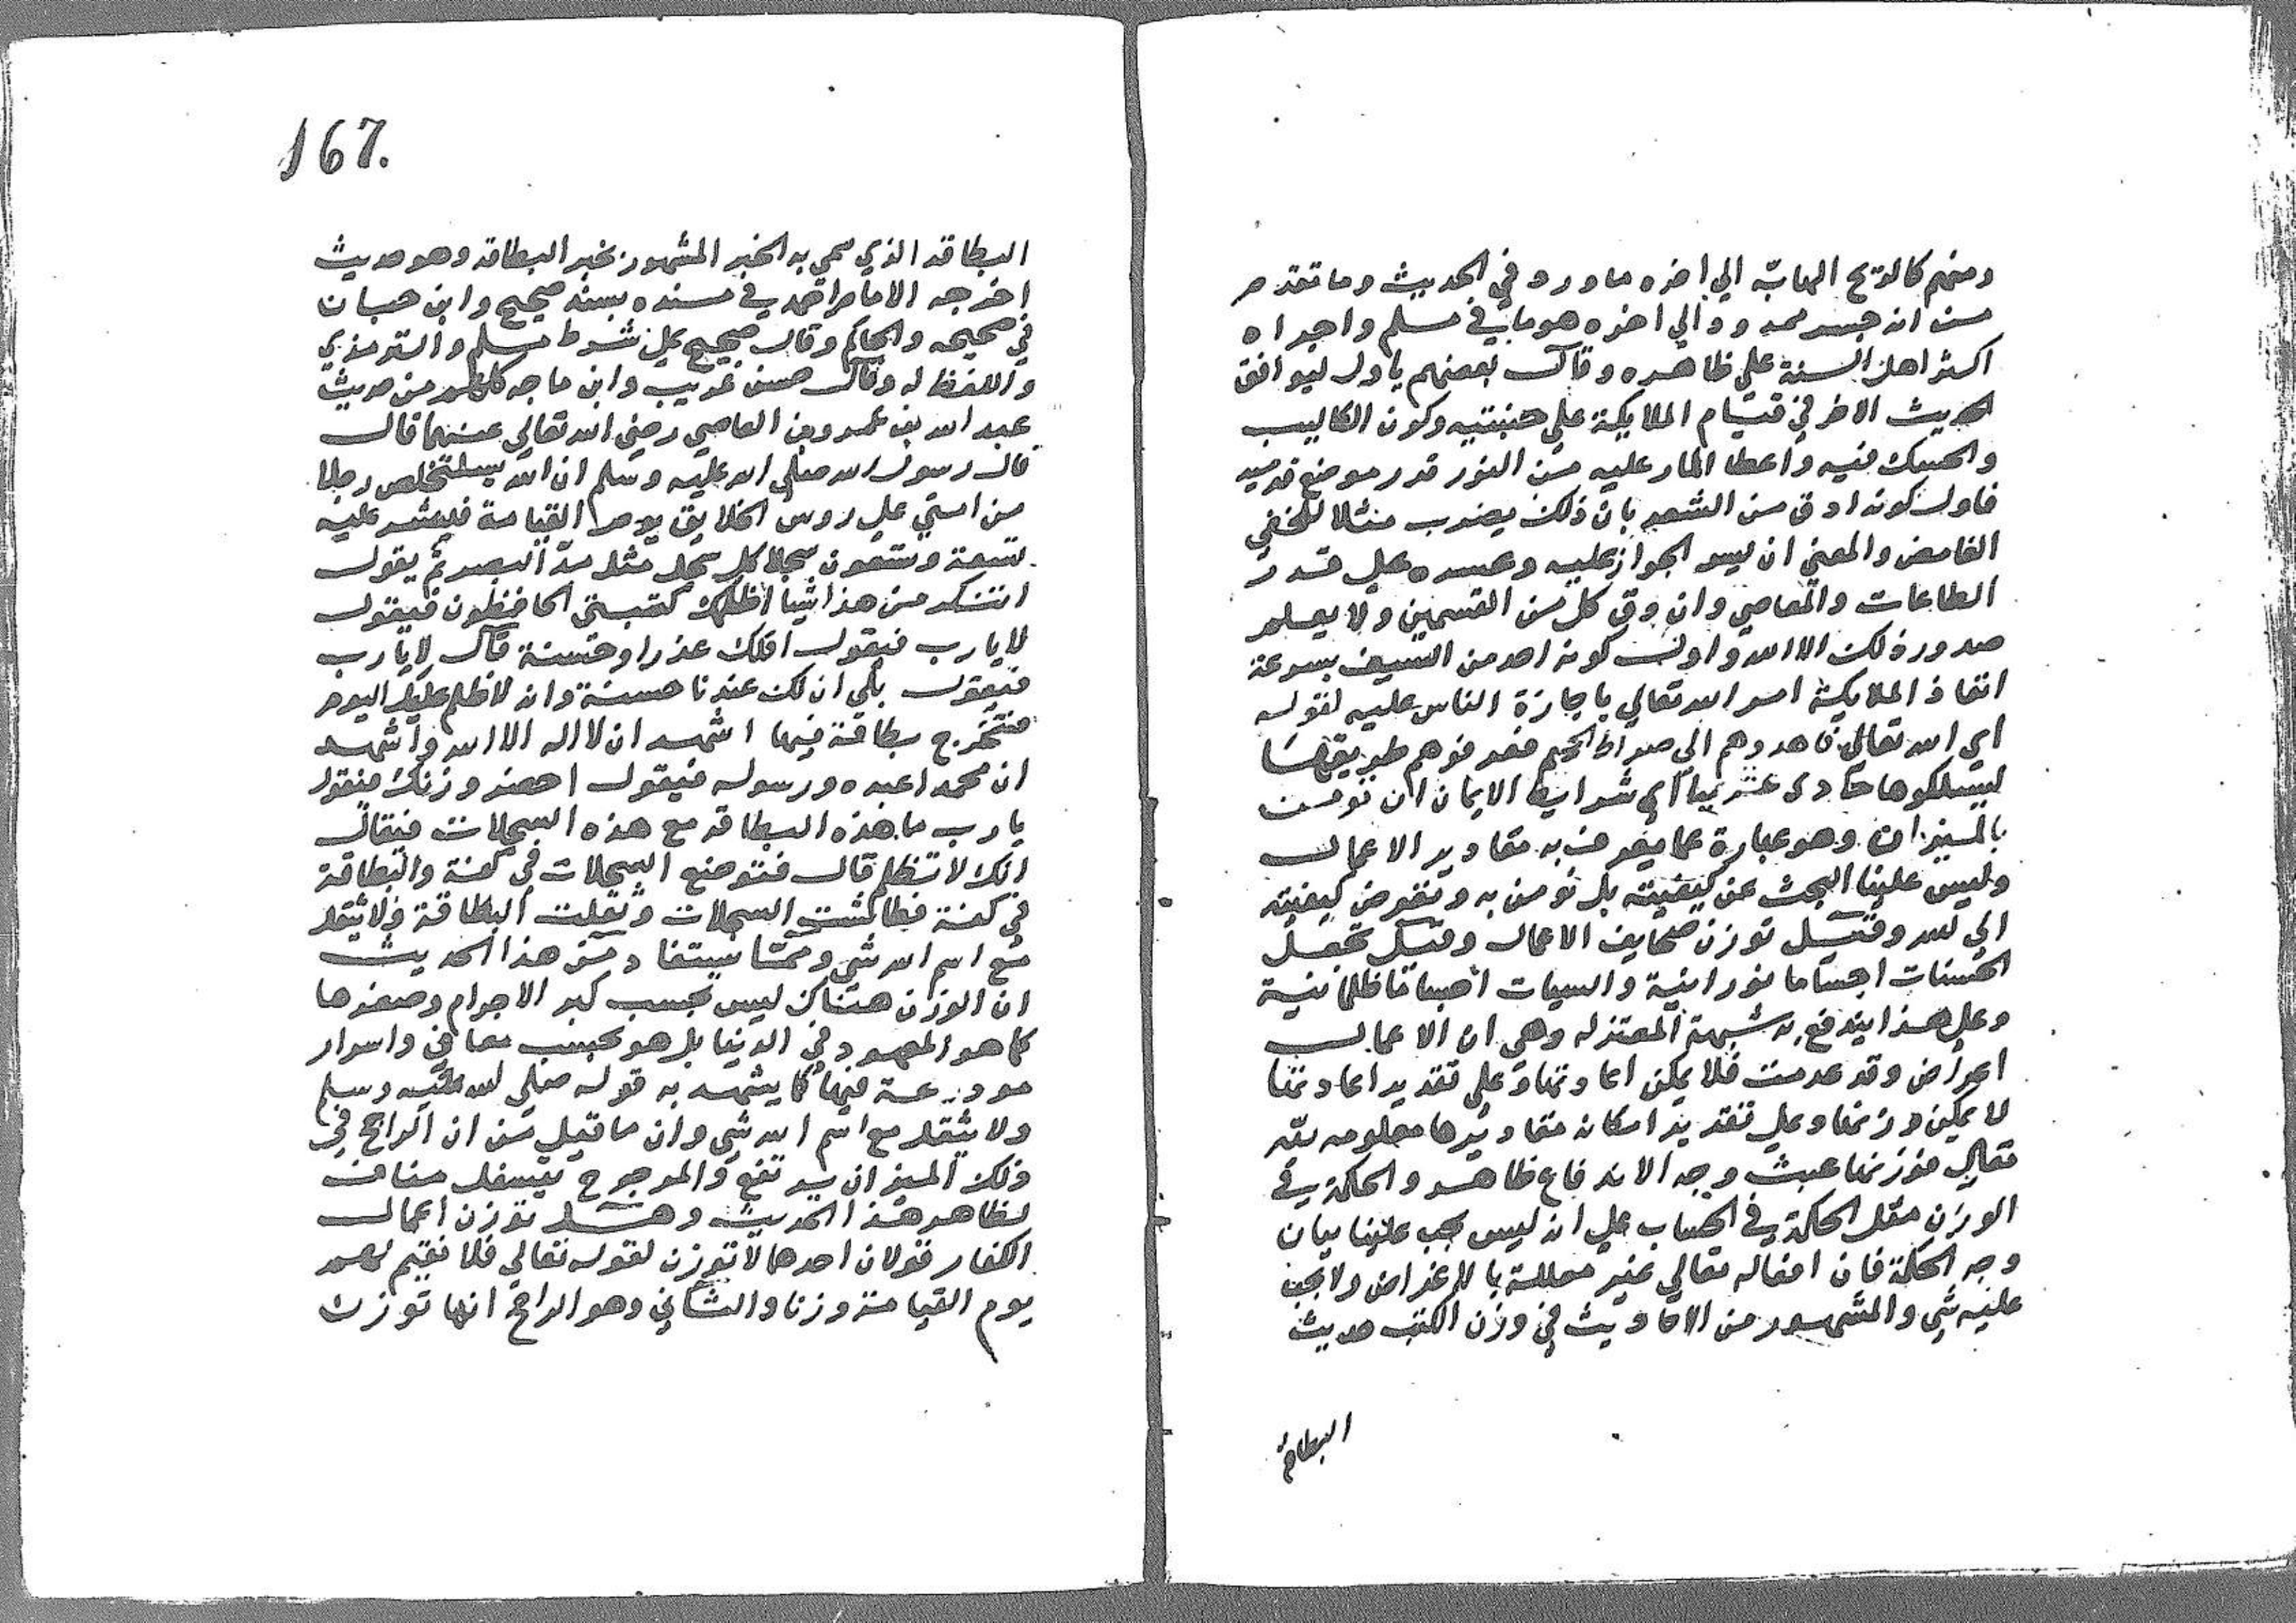 ومنهم كالريح الهابّة الي اخره ما ورد في الحديث وما تقدم
من انه جسر ممدود الي اخره هو ما في مسلم واجراه
اكثر اهل السنة علي ظاهره وقال بعضهم ياول ليوافق
الحديث الاخر في قيام الملايكة علي جنبتيه وكون الكلاليب
والحسك فيه واعطا المار عليه من النور قدر موضع قدميه
فاول كونه ادق من الشعر بان ذلك يضرب مثلا للخفي
الغامض والمعني ان يسر الجواز عليه وعسره علي قدر
الطاعات والمعاصي وان دق كل من القسمين ولا يعلم
حدود ذلك الا الله واول كونه احد من السيف بسرعة
انفاذ الملايكة امر الله تعالي باجازة الناس عليه لقوله
اي الله تعالي فاهدوهم الي صراط الجحيم فعرفوهم طريقها
ليسلكوها حادي عشرينها اي شرايط الايمان ان نومن
بالميزان وهو عبارة عما يعرف به مقادير الاعمال
وليس علينا البحث عن كيفيته بل نومن به ونفوض كيفيته
الي الله وقيل توزن صحايف الاعمال وقيل تجعل
الحسنات اجساما نورانية والسيات اجساما ظلمانية
وعلي هذا يندفع به شبهة المعتزله وهي ان الاعمال
اعراض وقد عدمت فلا يمكن اعادتها وعلي تقدير اعادتها
لا يمكن وزنها وعلي تقدير امكانه مقاديرها معلومه لله
تعالي فوزنها عبث وجه الاندفاع ظاهر والحكمة في
الوزن مثل الحكمة في الحساب علي انه ليس يجب علينا بيان
وجه الحكمة فان افعاله تعالي غير معللة بالاغراض ولا يجب
عليه شي والمشهور من الاحاديث في وزن الكتب حديث
البطاقة
167.
البطاقه الذي سمي به الخبر المشهور بخبر البطاقه وهو حديث
اخرجه الامام احمد في مسنده بسند صحيح وابن حبان
في صحيحه والحاكم وقال صحيح علي شرط مسلم والترمذي
واللفظ له وقال حسن غريب وابن ماجه كلهم من حديث
عبد الله بن عمرو بن العاصي رضي الله تعالي عنهما قال
قال رسول الله صلي الله عليه وسلم ان الله يستخلص رجلا
من امتي علي روس الخلايق يوم القيامة فينشر عليه
تسعة وتسعون سجلا كل سجل مثل مد البصر ثم يقول
اتنكر من هذا شيا اظلمك كتبتي الحافظون فيقول
لا يا رب فيقول افلك عذر او حسنة قال لا يا رب
فيقول بلي ان لك عندنا حسنة وانه لا ظلم عليك اليوم
فتخرج بطاقة فيها اشهد ان لا اله الا الله واشهد
ان محمدا عبده ورسوله فيقول احضر وزنك فيقول
يا رب ما هذه البطاقه مع هذه السجلات فيقال
انك لا تظلم قال فتوضع السجلات في كفة والبطاقة
في كفة فطاشت السجلات وثقلت البطاقة ولا يثقل
مع اسم الله شي ومما يستفاد من هذا الحديث
ان الوزن هناك ليس بحسب كبر الاجرام وصغرها
كما هو المعهود في الدنيا بل هو بحسب معاني واسرار
مودعة فيها كما يشهد به قوله صلي الله عليه وسلم
ولا يثقل مع اسم الله شي وان ما قيل من ان الراجح في
ذلك الميزان يرتفع والمرجوح يتسفل مناف
لظاهر هذا الحديث وهل توزن اعمال
الكفار قولان احدهما لا توزن لقوله تعالي فلا نقيم لهم
يوم القيامة وزنا والثاني وهو الراجح انها توزن